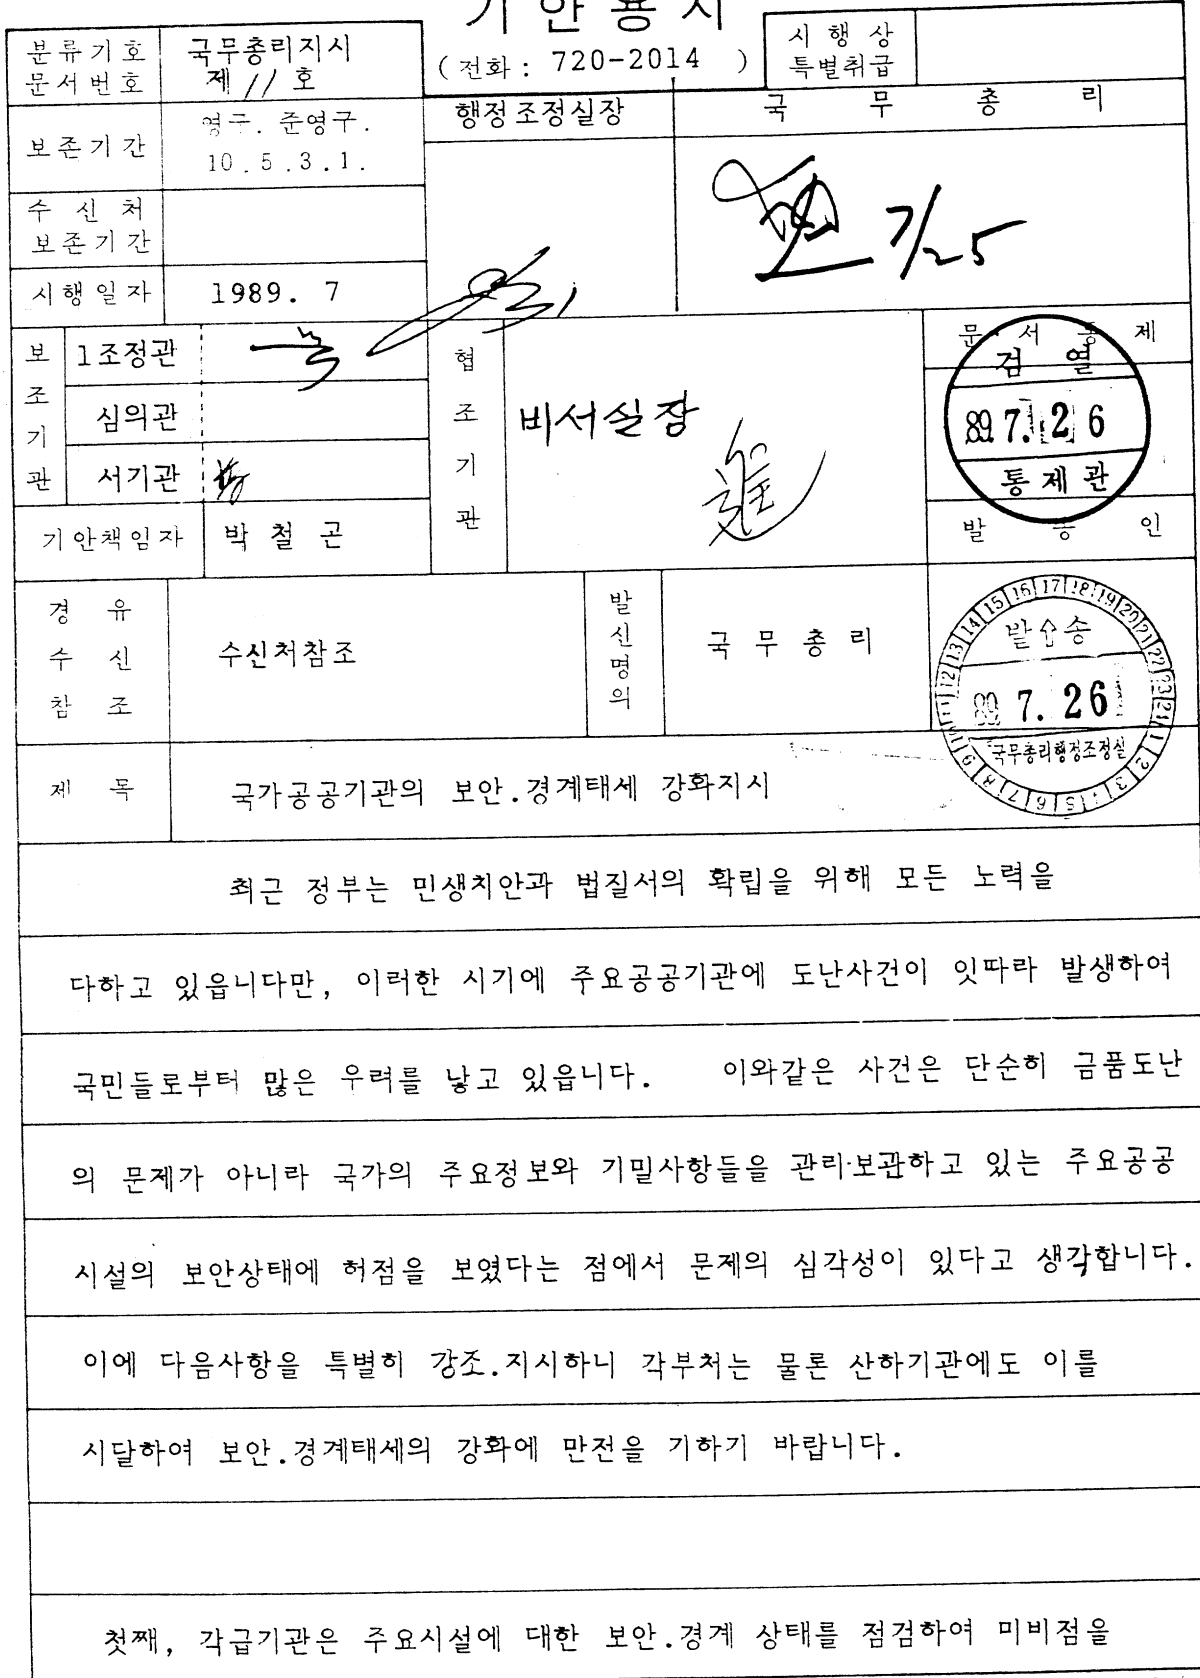 기 안 용 지
분류기호
문서번호
국무총리지시
제 11 호
(전화 : 720-2014 )
시 행 상
특별취급
보존기간
영구. 준영구.
10 . 5 . 3 . 1 .
행정조정실장
국 무 총 리
7/25
수 신 처
보존기간
시행일자
1989. 7
보조기관
1조정관
심의관
서기관
기안책임자
박 철 곤
협조기관
비서실장
進
문 서 통 제
검 열
89. 7. 26
통제관
발 송 인
경 유
수 신
참 조
수신처참조
발신명의
국 무 총 리
12 13 14 15 16 17 18 19 20 21 22 23 24 1 2 3 4 5 6 7 8 9 10 11
발 송
89 7. 26
국무총리행정조정실
제 목
국가공공기관의 보안.경계태세 강화지시
최근 정부는 민생치안과 법질서의 확립을 위해 모든 노력을
다하고 있읍니다만, 이러한 시기에 주요공공기관에 도난사건이 잇따라 발생하여
국민들로부터 많은 우려를 낳고 있읍니다. 이와같은 사건은 단순히 금품도난
의 문제가 아니라 국가의 주요정보와 기밀사항들을 관리·보관하고 있는 주요공공
시설의 보안상태에 허점을 보였다는 점에서 문제의 심각성이 있다고 생각합니다.
이에 다음사항을 특별히 강조.지시하니 각부처는 물론 산하기관에도 이를
시달하여 보안.경계태세의 강화에 만전을 기하기 바랍니다.
첫째, 각급기관은 주요시설에 대한 보안.경계 상태를 점검하여 미비점을